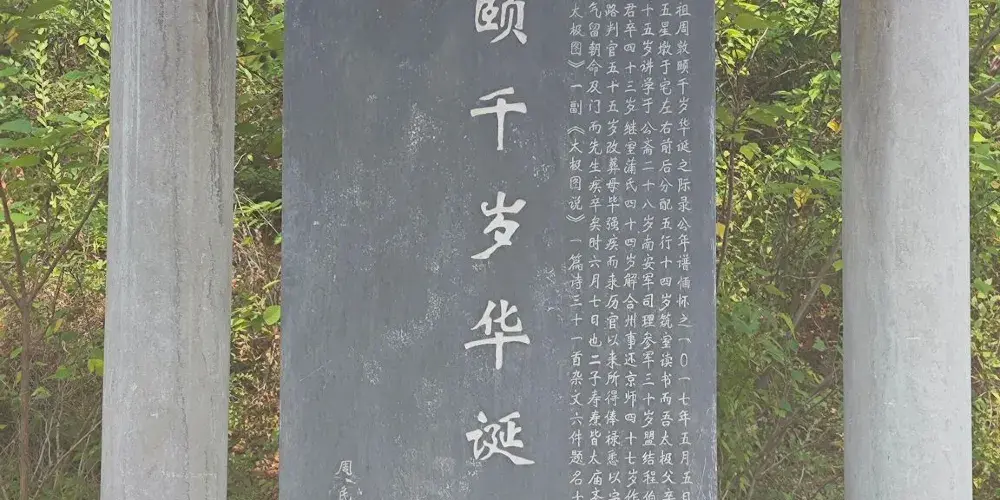 祖周敦颐千岁华诞之际录公年谱缅怀之一〇一七年五月五日
五星墩于宅左右前后分配五行十四岁筑室读书而吾太极父
十五岁讲学于公斋二十八岁南安军司理参军三十岁盟结程伯
君卒四十三岁继室蒲氏四十四岁解合州事还京师四十七岁作
路判官五十五岁改葬母毕强疾而来历官以来所得俸禄悉以
气留朝命及门而先生疾卒矣时六月七日也二子寿焘皆太庙斋
太极图》一副《太极图说》一篇诗三十一首杂文六件题名十
颐千岁华诞
周